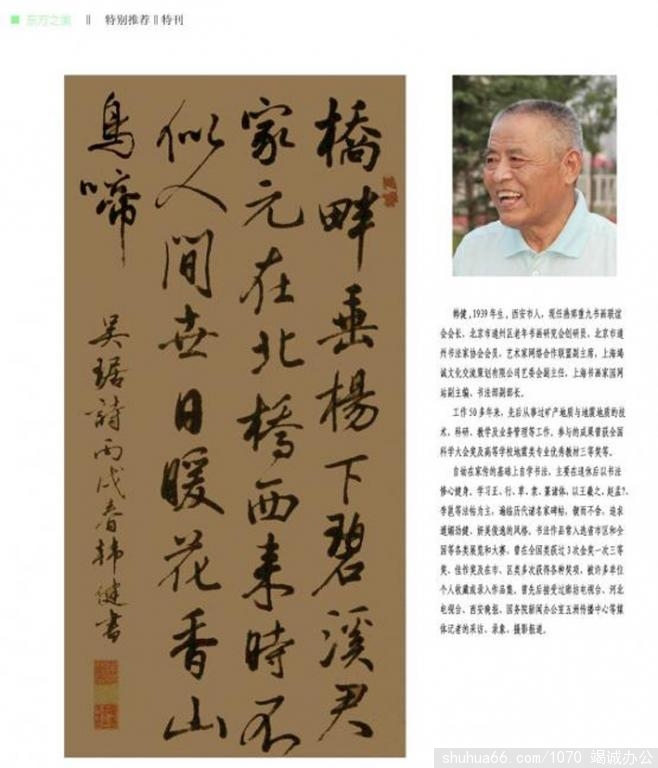 东方之美 ‖ 特别推荐 ‖ 特刊
橋畔垂楊下碧溪君
家元在北橋西来時不
似人間世日暖花香山
鳥啼
吴琚詩丙戌春韩健書
韩健,1939年生,西安市人,现任燕郊重九书画联谊
会会长、北京市通州区老年书画研究会创研员、北京市通
州书法家协会会员、艺术家网络合作联盟副主席,上海竭
诚文化交流策划有限公司艺委会副主任,上海书画家园网
站副主编、书法部副部长。
工作50多年来,先后从事过矿产地质与地震地质的技
术、科研、教学及业务管理等工作。参与的成果曾获全国
科学大会奖及高等学校地震类专业优秀教材三等奖等。
自幼在家传的基础上自学书法,主要在退休后以书法
修心健身。学习正、行、草、隶、篆诸体,以王羲之、赵孟?、
李邕等法帖为主,遍临历代诸名家碑帖,锲而不舍,追求
遒媚劲健、妍美俊逸的风格。书法作品常入选省市区和全
国等各类展览和大赛。曾在全国类获过3次金奖一次三等
奖、佳作奖及在市、区类多次获得各种奖项,被许多单位
个人收藏或录入作品集。曾先后接受过廊坊电视台、河北
电视台、西安晚报、国务院新闻办公室五洲传播中心等媒
体记者的采访、录象、摄影报道。
shuhua66.com/1070 竭诚办公